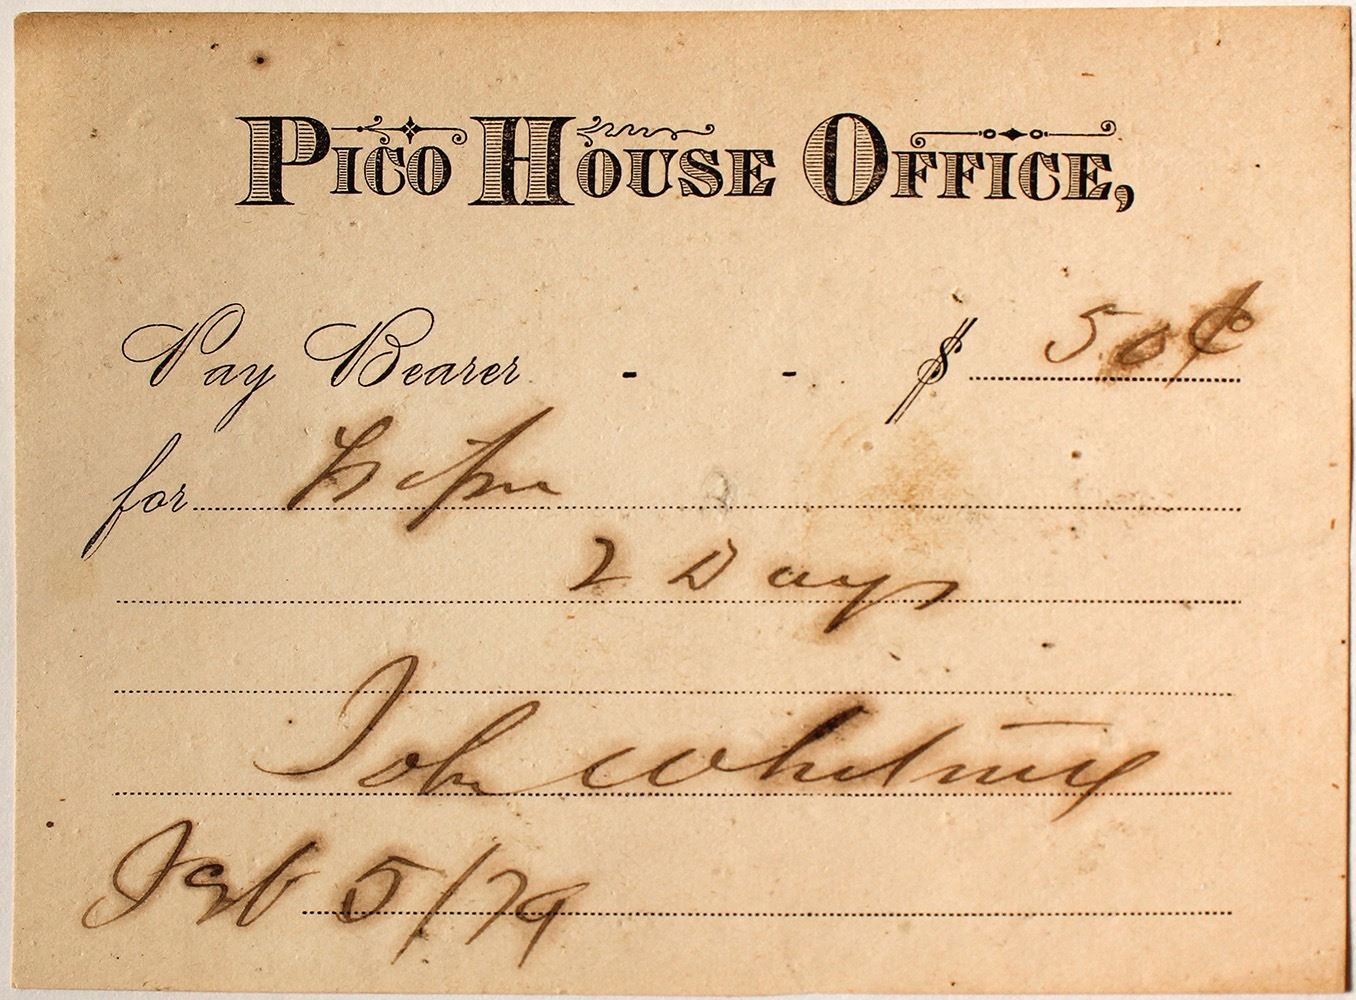 PICO HOUSE OFFICE,
Pay Bearer - - $ 50¢
for
2 Days
John Whitney
Feb 5/79